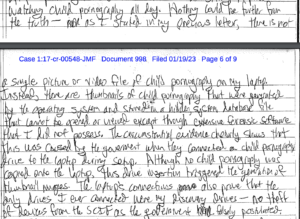 watching child pornography all day. Nothing could be further from
the truth — and as I stated in my previous letter, there is not
Case 1:17-cr-00548-JMF Document 998 Filed 01/19/23 Page 6 of 9
a single picture or video file of child pornography on my laptop.
Instead there are thumbnails of child pornography that were generated
by the operating system and stored in a hidden system database file
that cannot be opened or viewed except through extensive forensic software
that I did not possess. The circumstantial evidence clearly shows that
this was caused by the government when they connected a child pornography
drive to the laptop during setup. Although no child pornography was
copied onto the laptop, this drive insertion triggered the generation of
thumbnail images. The laptop's connections also prove that the
only drives I ever connected were my discovery drives — no theft
of devices from the SCIF as the government postulated.